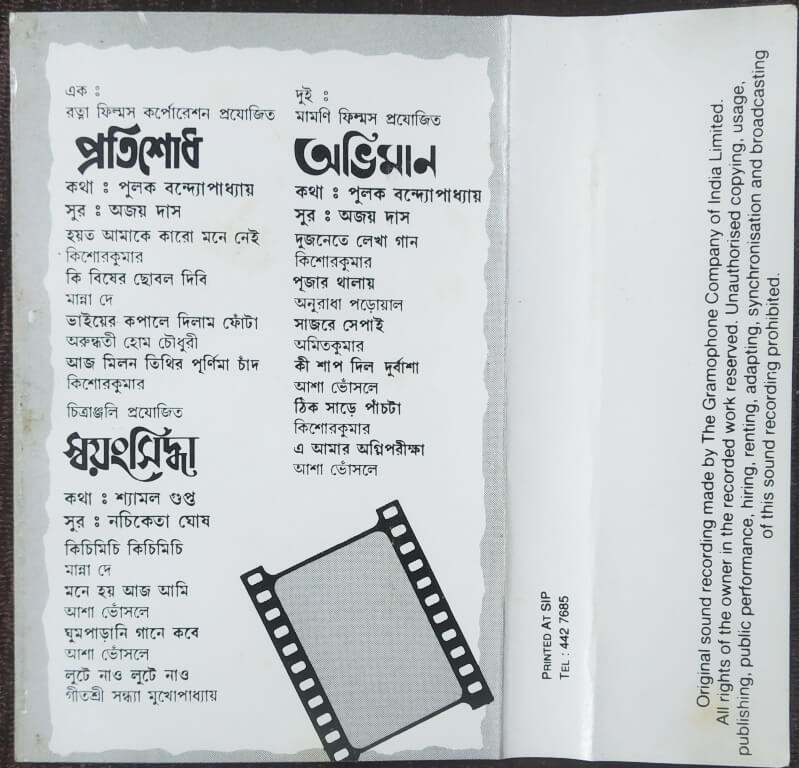 এক :
রত্না ফিল্মস কর্পোরেশন প্রযোজিত
প্রতিশোধ
কথা : পুলক বন্দ্যোপাধ্যায়
সুর : অজয় দাস
হয়ত আমাকে কারো মনে নেই
কিশোরকুমার
কি বিষের ছোবল দিবি
মান্না দে
ভাইয়ের কপালে দিলাম ফোঁটা
অরুন্ধতী হোম চৌধুরী
আজ মিলন তিথির পূর্ণিমা চাঁদ
কিশোরকুমার
চিত্রাঞ্জলি প্রযোজিত
স্বয়ংসিদ্ধা
কথা : শ্যামল গুপ্ত
সুর : নচিকেতা ঘোষ
কিচিমিচি কিচিমিচি
মান্না দে
মনে হয় আজ আমি
আশা ভোঁসলে
ঘুমপাড়ানি গানে কবে
আশা ভোঁসলে
লুটে নাও লুটে নাও
গীতশ্রী সন্ধ্যা মুখোপাধ্যায়
দুই :
মামণি ফিল্মস প্রযোজিত
অভিমান
কথা : পুলক বন্দ্যোপাধ্যায়
সুর : অজয় দাস
দুজনেতে লেখা গান
কিশোরকুমার
পূজার থালায়
অনুরাধা পড়োয়াল
সাজরে সেপাই
অমিতকুমার
কী শাপ দিল দুর্বাশা
আশা ভোঁসলে
ঠিক সাড়ে পাঁচটা
কিশোরকুমার
এ আমার অগ্নিপরীক্ষা
আশা ভোঁসলে
PRINTED AT SIP
TEL : 442 7685
Original sound recording made by The Gramophone Company of India Limited.
All rights of the owner in the recorded work reserved. Unauthorised copying, usage,
publishing, public performance, hiring, renting, adapting, synchronisation and broadcasting
of this sound recording prohibited.